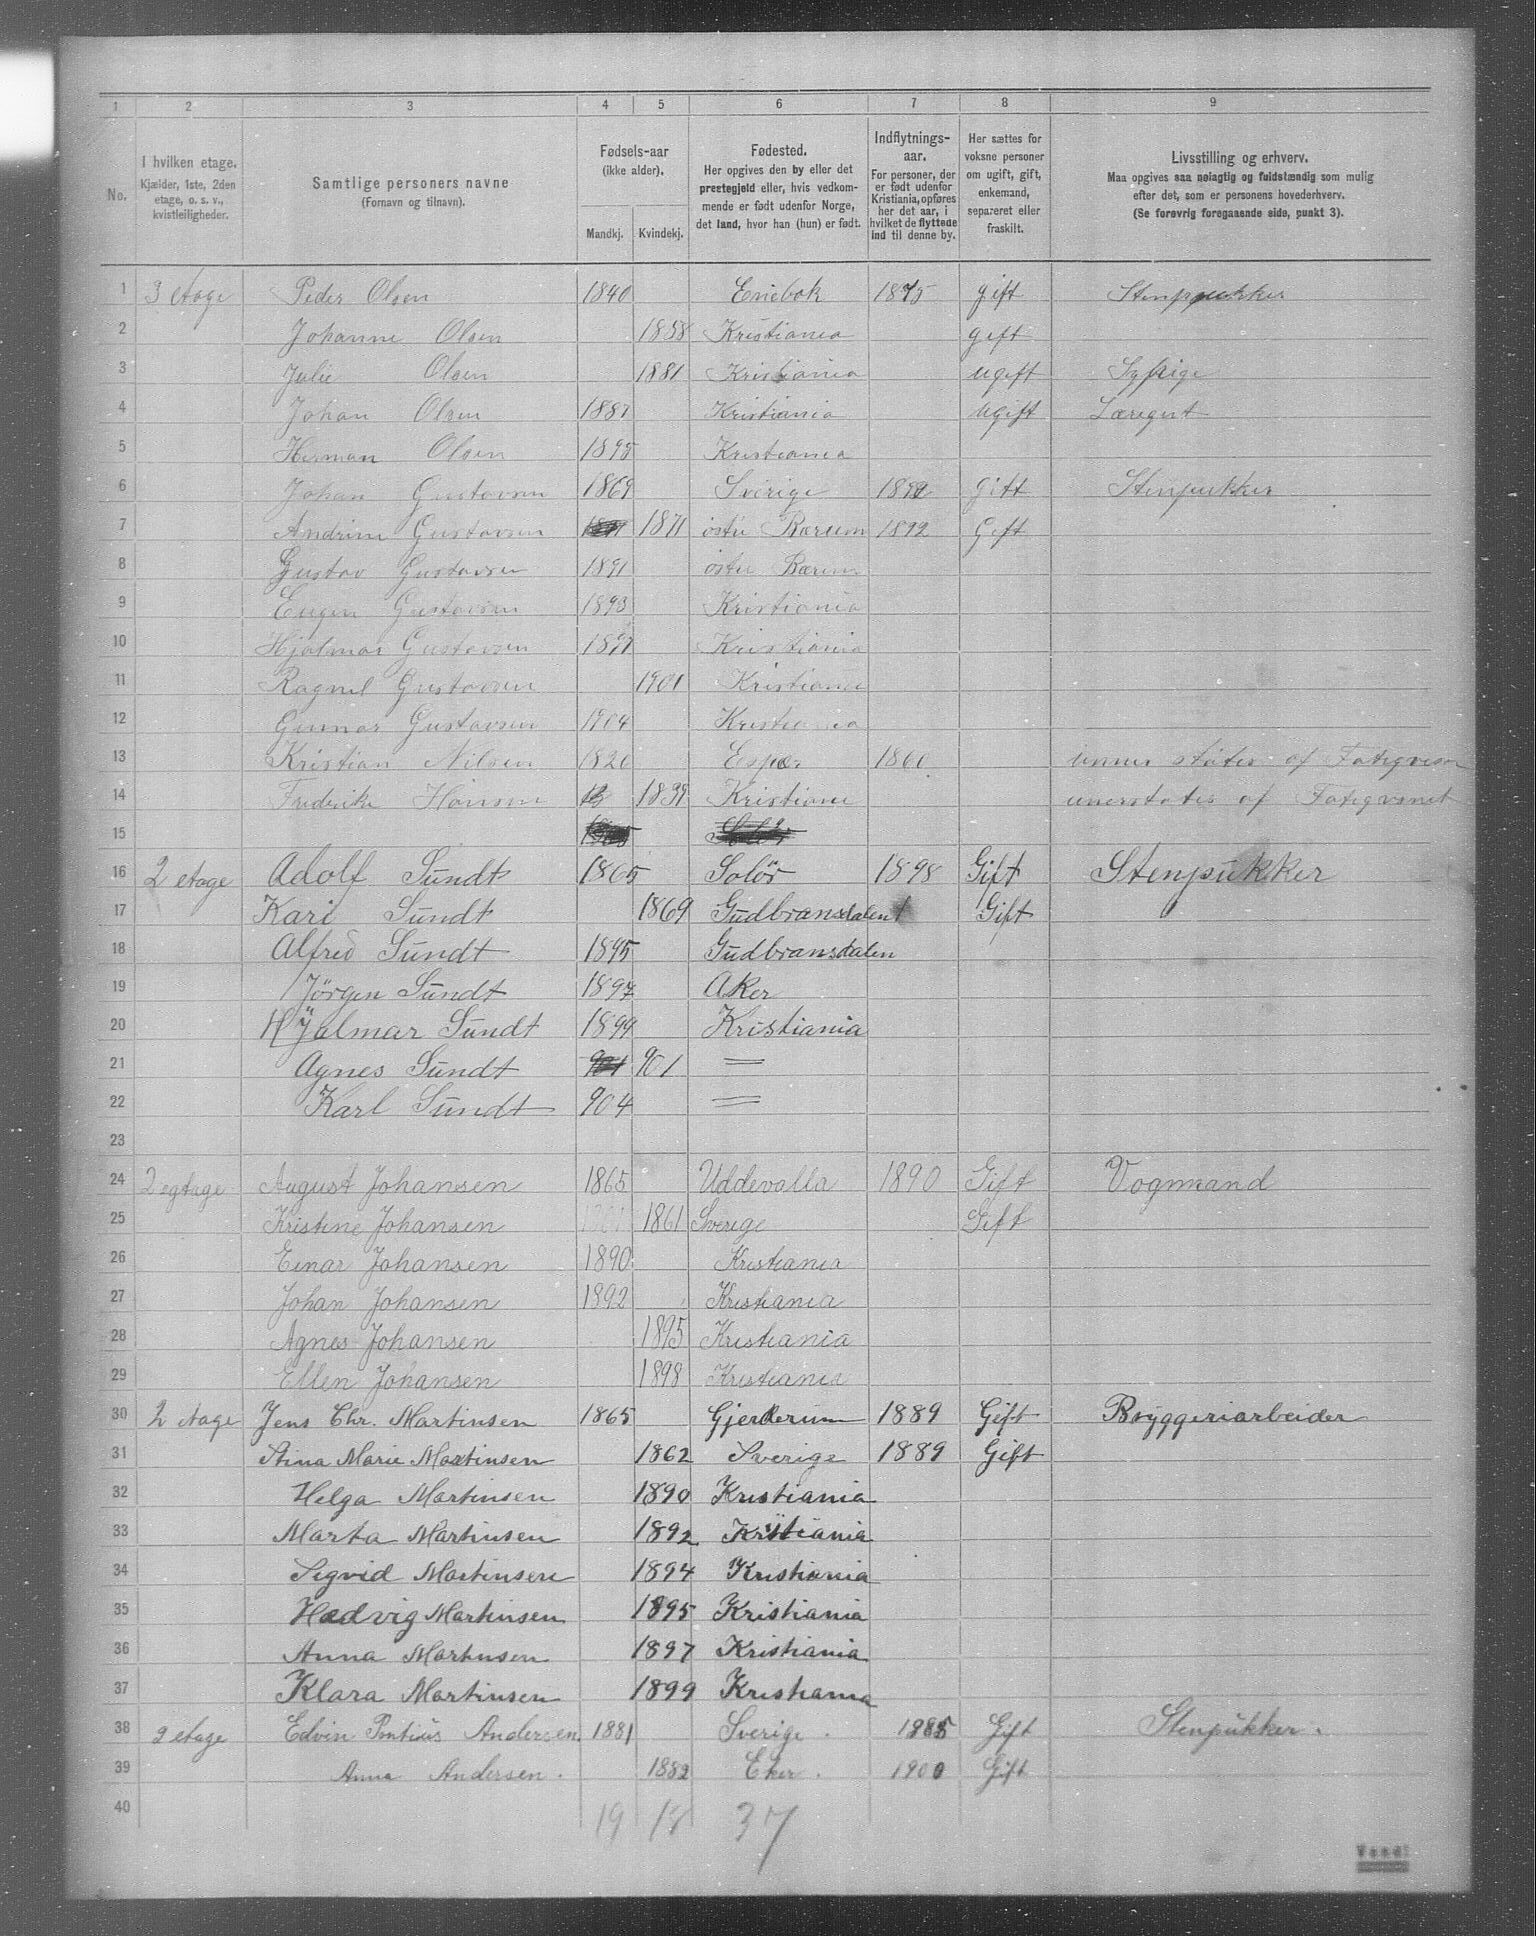 1 2 3 4 5 6 7 8 9
No.
I hvilken etage.
Kjælder, 1ste, 2den
etage, o. s. v.,
kvistleiligheder.
Samtlige personers navne
(Fornavn og tilnavn).
Fødsels-aar
(ikke alder).
Mandkj. Kvindekj.
Fødested.
Her opgives den by eller det
prestegjeld eller, hvis vedkom-
mende er født udenfor Norge,
det land, hvor han (hun) er født.
Indflytnings-
aar.
For personer, der
er født udenfor
Kristiania, opføres
her det aar, i
hvilket de flyttede
ind til denne by.
Her sættes for
voksne personer
om ugift, gift,
enkemand,
separeret eller
fraskilt.
Livsstilling og erhverv.
Maa opgives saa nøiagtig og fuldstændig som mulig
efter det, som er personens hovederhverv.
(Se forøvrig foregaaende side, punkt 3).
1 3 etage Peder Olsen 1840 Enebok 1875 gift Stenpukker
2 Johanne Olsen 1858 Kristiania gift
3 Julie Olsen 1881 Kristiania ugift Syerige
4 Johan Olsen 1887 Kristiania ugift Læregut
5 Herman Olsen 1895 Kristiania
6 Johan Gustavsen 1869 Sverige 1892 Gift Stenpukker
7 Andrine Gustavsen 1871 østre Bærum 1892 Gift
8 Gustav Gustavsen 1891 østre Bærum
9 Eugen Gustavsen 1893 Kristiania
10 Hjalmar Gustavsen 1897 Kristiania
11 Ragnil Gustavsen 1901 Kristiania
12 Gunnar Gustavsen 1904 Kristiania
13 Kristian Nilsen 1820 Esper 1860 unner støtes af Fatigvesen
14 Frederike Hansen 1839 Kristiania unerstøtes af Fatigvsnet
15 Solör
16 2 etage Adolf Sundt 1865 Solör 1898 Gift Stenpukker
17 Kari Sundt 1869 Gudbransdalen Gift
18 Alfred Sundt 1895 Gudbransdalen
19 Jörgen Sundt 1897 Aker
20 Hjalmar Sundt 1899 Kristiania
21 Agnes Sundt 901 =
22 Karl Sundt 904 =
23
24 2 egtage August Johansen 1865 Uddevalla 1890 Gift Vogmand
25 Kristine Johansen 1861 Sverige Gift
26 Einar Johansen 1890 Kristiania
27 Johan Johansen 1892 Kristiania
28 Agnes Johansen 1895 Kristiania
29 Ellen Johansen 1898 Kristiania
30 2 etage Jens Chr. Martinsen 1865 Gjerderum 1889 Gift Bryggeriarbeider
31 Stina Marie Martinsen 1862 Sverige 1889 Gift
32 Helga Martinsen 1890 Kristiania
33 Marta Martinsen 1892 Kristiania
34 Sigvid Martinsen 1894 Kristiania
35 Hedvig Martinsen 1895 Kristiania
36 Anna Martinsen 1897 Kristiania
37 Klara Martinsen 1899 Kristiania
38 2 etage Edvin Pontius Andersen. 1881 Sverige. 1885 Gift Stenpukker.
39 Anna Andersen. 1882 Eker. 1900 Gift
40 19 18 37
Vend!